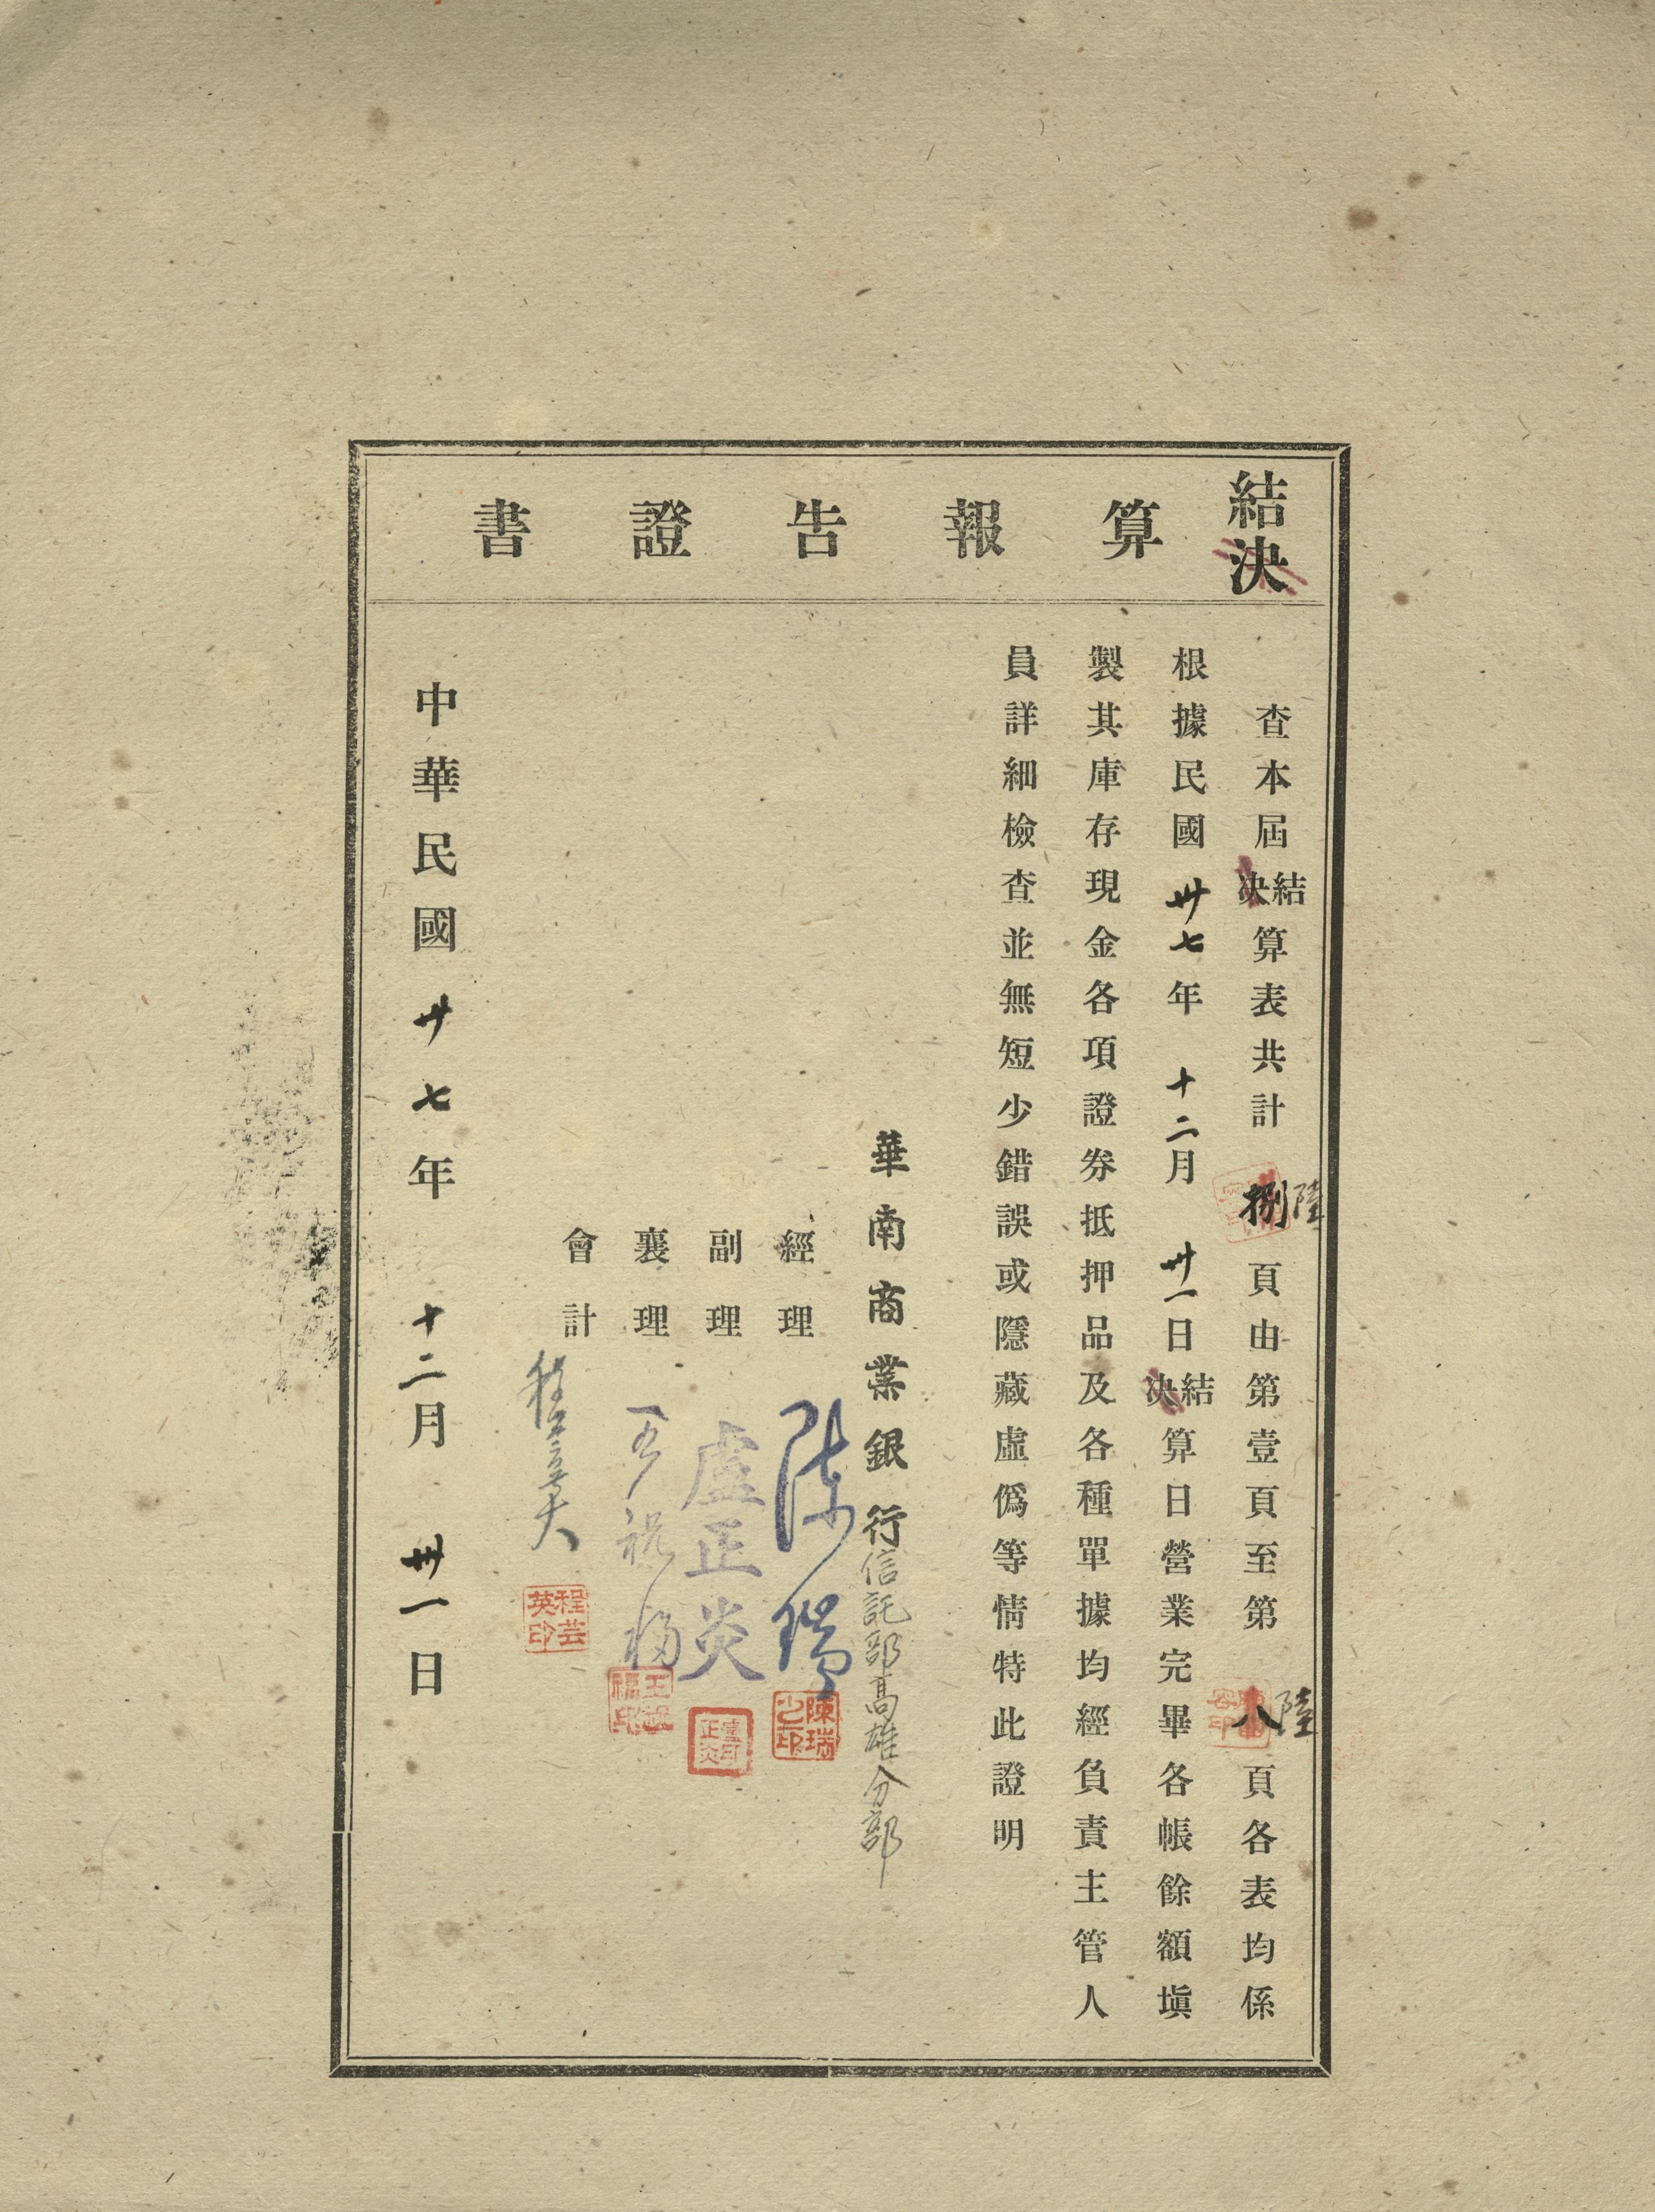 結決算報告證書
查本屆結決算表共計捌陸頁由第壹頁至第八陸頁各表均係
根據民國卅七年十二月卅一日結決算日營業完畢各帳餘額塡
製其庫存現金各項證券抵押品及各種單據均經負責主管人
員詳細檢查並無短少錯誤或隱藏虛僞等情特此證明
華南商業銀行信託部高雄分部
經理 陳瑞
陳瑞
副理 盧正炎
盧正炎
襄理 王祝福
王祝福印
會計 程芸英
程芸英印
中華民國卅七年十二月卅一日